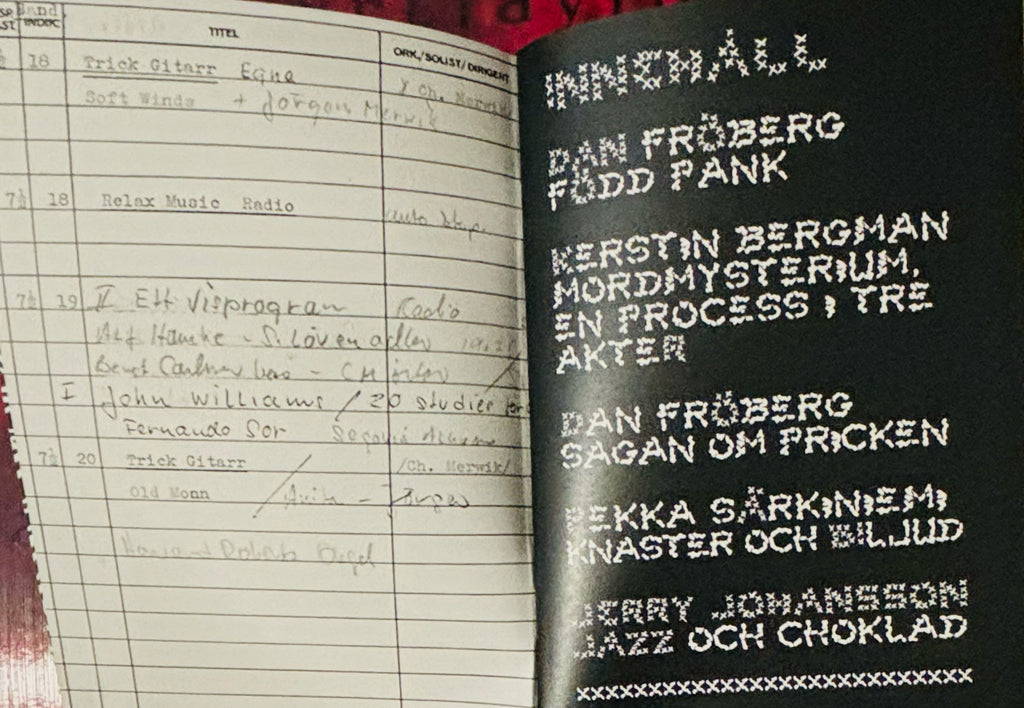 Band
INDEX
TITEL
ORK./SOLIST/DIRIGENT
18 Trick Gitarr Egna
Y Ch. Merwik
Soft Winds + Jörgen Merwik
7½ 18 Relax Music Radio
7½ 19 II Ett Visprogram Radio
I John Williams / 20 studier
Fernando Sor Segovia
7½ 20 Trick Gitarr /Ch. Merwik/
Old Monn
INNEHÅLL
DAN FRÖBERG
FÖDD PANK
KERSTIN BERGMAN
MORDMYSTERIUM,
EN PROCESS I TRE
AKTER
DAN FRÖBERG
SAGAN OM PRICKEN
PEKKA SÄRKINIEMI
KNASTER OCH BILJUD
JERRY JOHANSSON
JAZZ OCH CHOKLAD
xxxxxxxxxxxxxxxxxxxxxxxxxxxxx